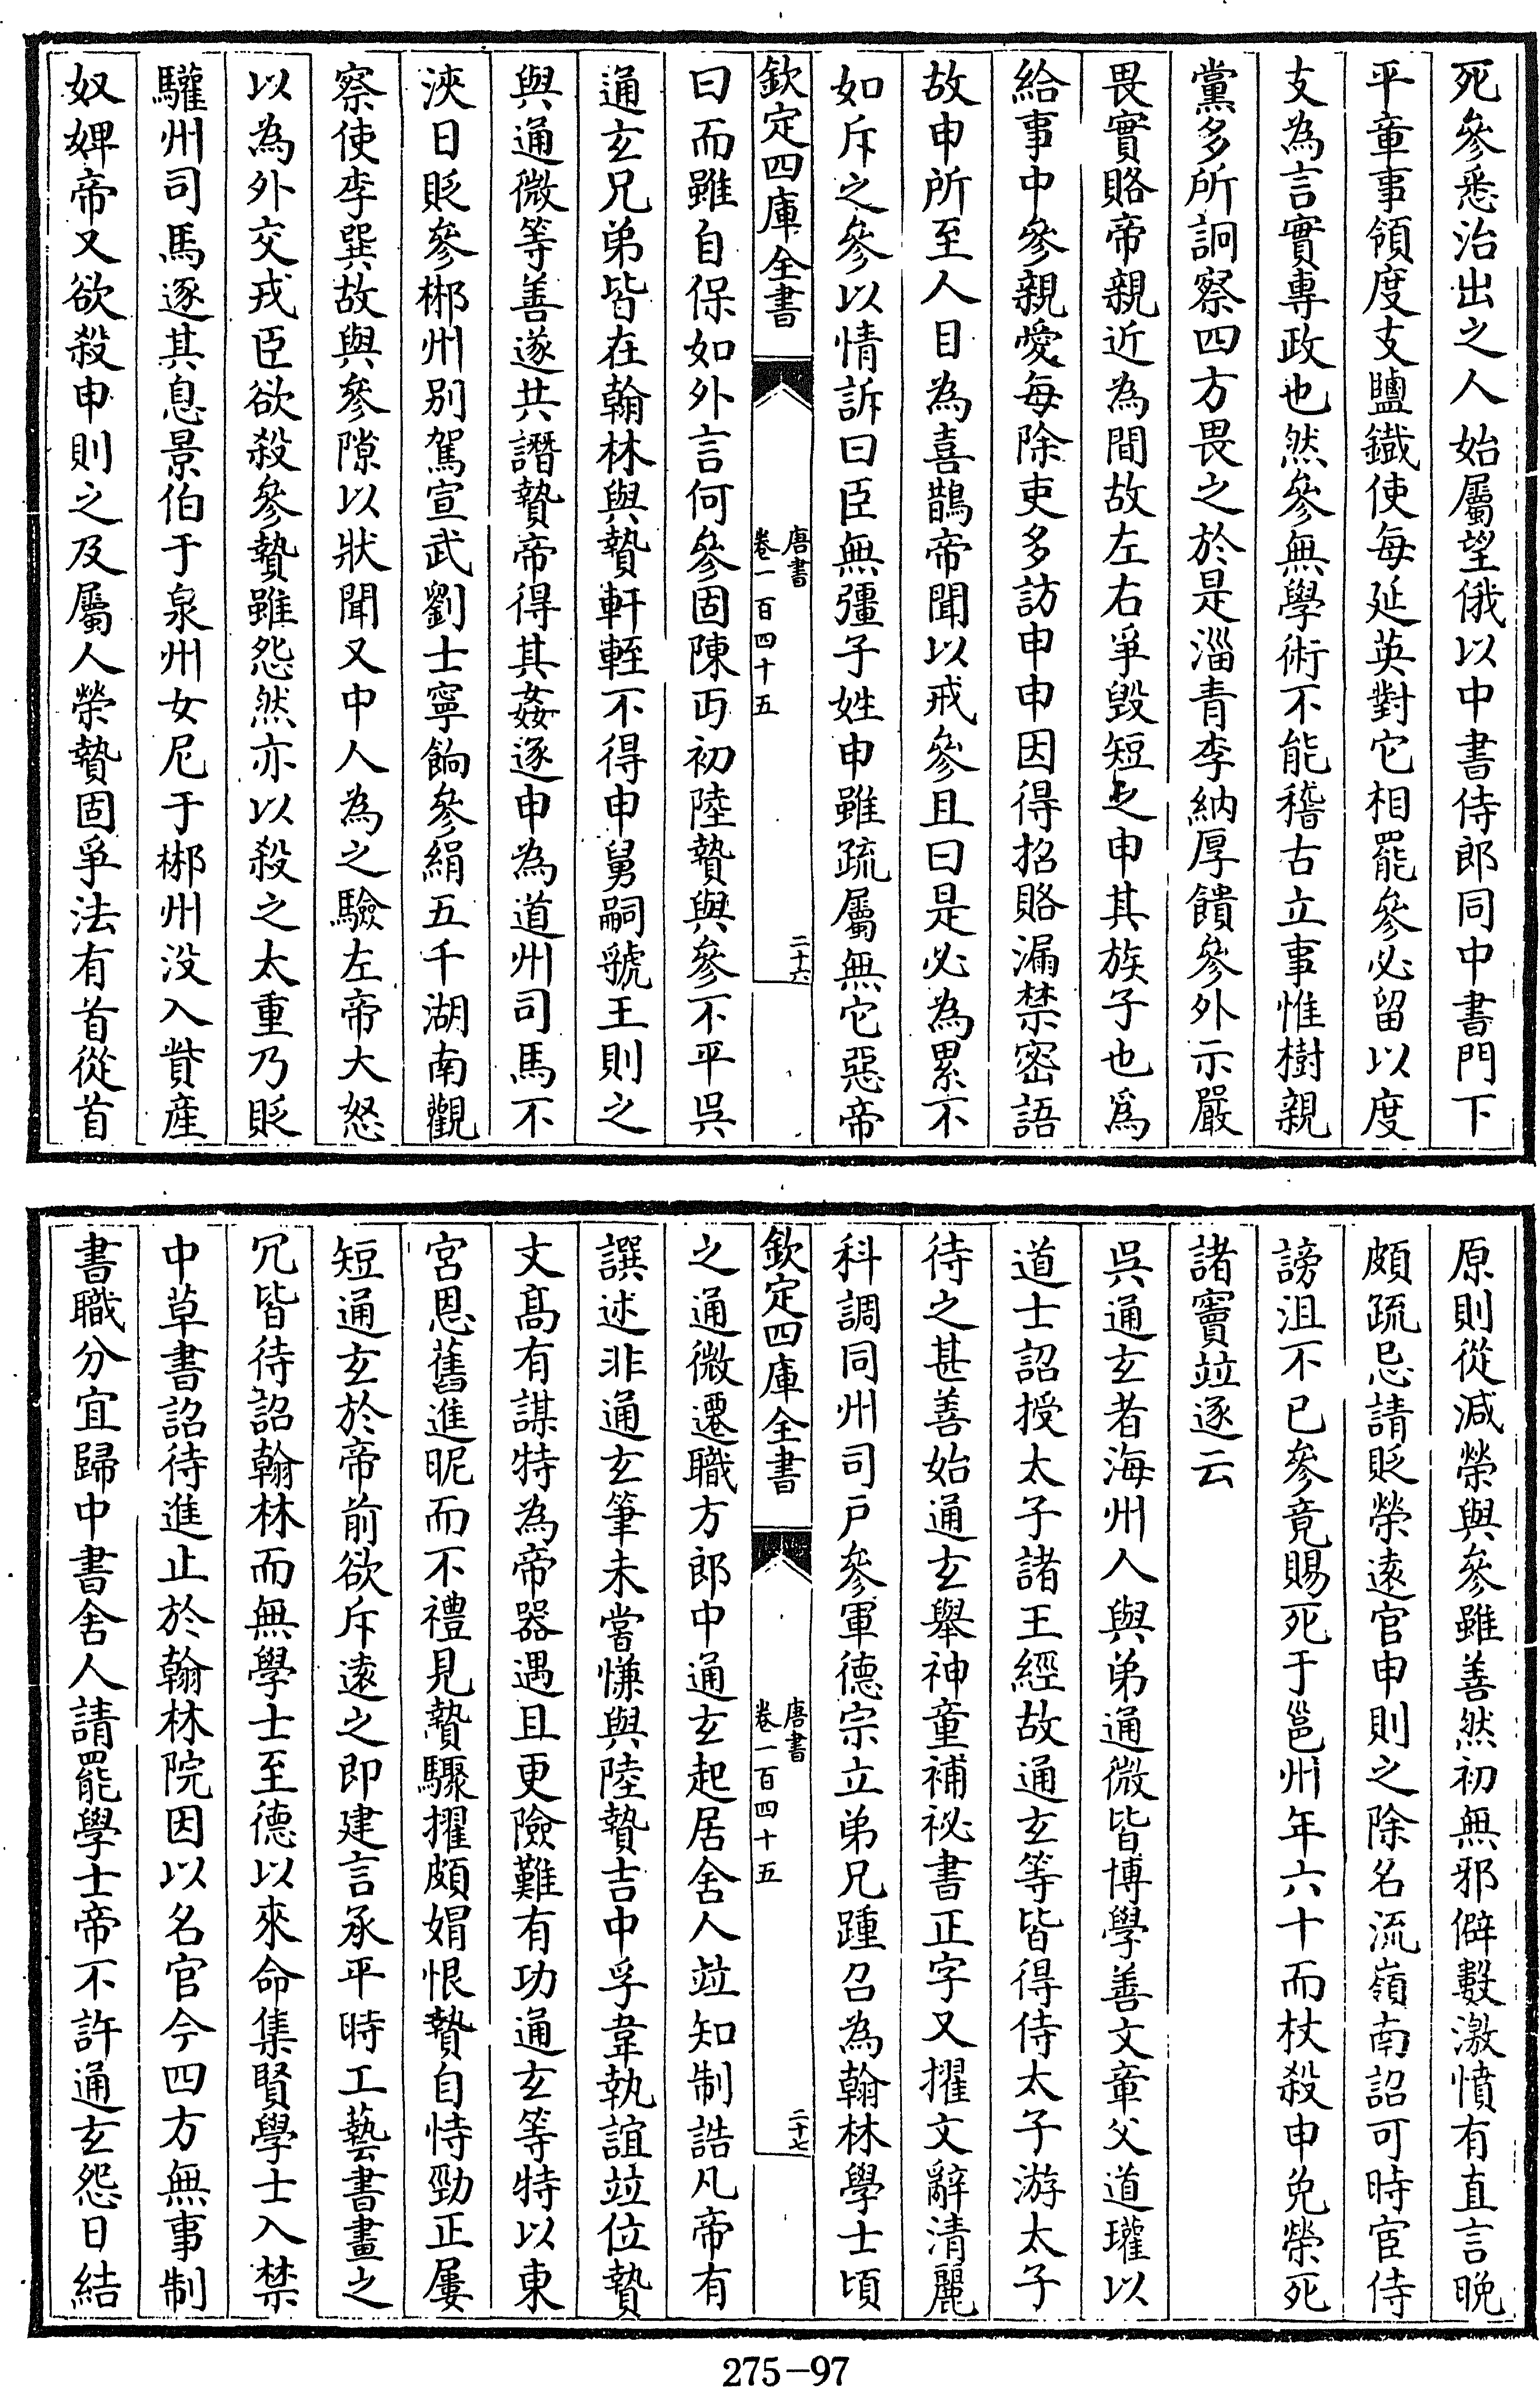 死參悉治出之人始屬望俄以中書侍郎同中書門下
平章事領度支鹽鐵使每延英對它相罷參必留以度
支為言實專政也然參無學術不能稽古立事惟樹親
黨多所詗察四方畏之於是淄青李納厚饋參外示嚴
畏實賂帝親近為間故左右爭毀短之申其族子也爲
給事中參親愛每除吏多訪申申因得招賂漏禁密語
故申所至人目為喜鵲帝聞以戒參且曰是必為累不
如斥之參以情訴曰臣無彊子姓申雖疏屬無它惡帝
欽定四庫全書
唐書
卷一百四十五
二十六
曰而雖自保如外言何參固陳丐初陸贄與參不平吳
通玄兄弟皆在翰林與贄軒輊不得申舅嗣虢王則之
與通微等善遂共譖贄帝得其姦逐申為道州司馬不
浹日貶參郴州別駕宣武劉士寧餉參絹五千湖南觀
察使李巽故與參隙以狀聞又中人為之驗左帝大怒
以為外交戎臣欲殺參贄雖怨然亦以殺之太重乃貶
驩州司馬逐其息景伯于泉州女尼于郴州没入貲産
奴婢帝又欲殺申則之及屬人榮贄固爭法有首從首
原則從減榮與參雖善然初無邪僻數激憤有直言晚
頗疏忌請貶榮逺官申則之除名流嶺南詔可時宦侍
謗沮不已參竟賜死于邕州年六十而杖殺申免榮死
諸竇竝逐云
吳通玄者海州人與弟通微皆博學善文章父道瓘以
道士詔授太子諸王經故通玄等皆得侍太子游太子
待之甚善始通玄舉神童補祕書正字又擢文辭清麗
科調同州司戶參軍德宗立弟兄踵召為翰林學士頃
欽定四庫全書
唐書
卷一百四十五
二十七
之通微遷職方郎中通玄起居舍人竝知制誥凡帝有
譔述非通玄筆未嘗慊與陸贄吉中孚韋執誼竝位贄
文高有謀特為帝器遇且更險難有功通玄等特以東
宮恩舊進昵而不禮見贄驟擢頗媢恨贄自恃勁正屢
短通玄於帝前欲斥逺之即建言承平時工藝書畫之
冗皆待詔翰林而無學士至德以來命集賢學士入禁
中草書詔待進止於翰林院因以名官今四方無事制
書職分宜歸中書舍人請罷學士帝不許通玄怨日結
275-97